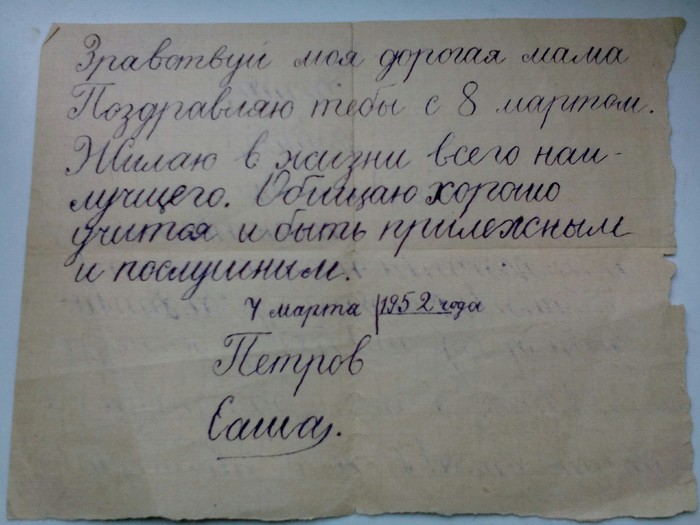 Зравствуй моя дорогая мама
Поздравляю тебы с 8 мартом.
Жилаю в жизни всего наи-
лучщего. Обищаю хорошо
учится и быть прилежным
и послушным.
7 марта 1952 года
Петров
Саша.